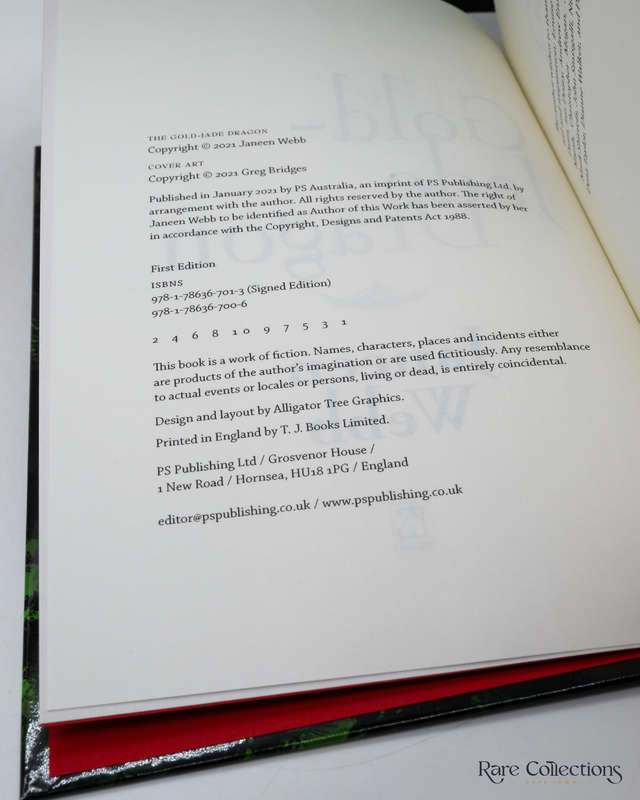 THE GOLD-JADE DRAGON
Copyright © 2021 Janeen Webb
COVER ART
Copyright © 2021 Greg Bridges
Published in January 2021 by PS Australia, an imprint of PS Publishing Ltd. by
arrangement with the author. All rights reserved by the author. The right of
Janeen Webb to be identified as Author of this Work has been asserted by her
in accordance with the Copyright, Designs and Patents Act 1988.
First Edition
ISBNS
978-1-78636-701-3 (Signed Edition)
978-1-78636-700-6
2 4 6 8 10 9 7 5 3 1
This book is a work of fiction. Names, characters, places and incidents either
are products of the author's imagination or are used fictitiously. Any resemblance
to actual events or locales or persons, living or dead, is entirely coincidental.
Design and layout by Alligator Tree Graphics.
Printed in England by T. J. Books Limited.
PS Publishing Ltd / Grosvenor House /
1 New Road / Hornsea, HU18 1PG / England
editor@pspublishing.co.uk / www.pspublishing.co.uk
Gold-
Dragon
Webb
Rare Collections